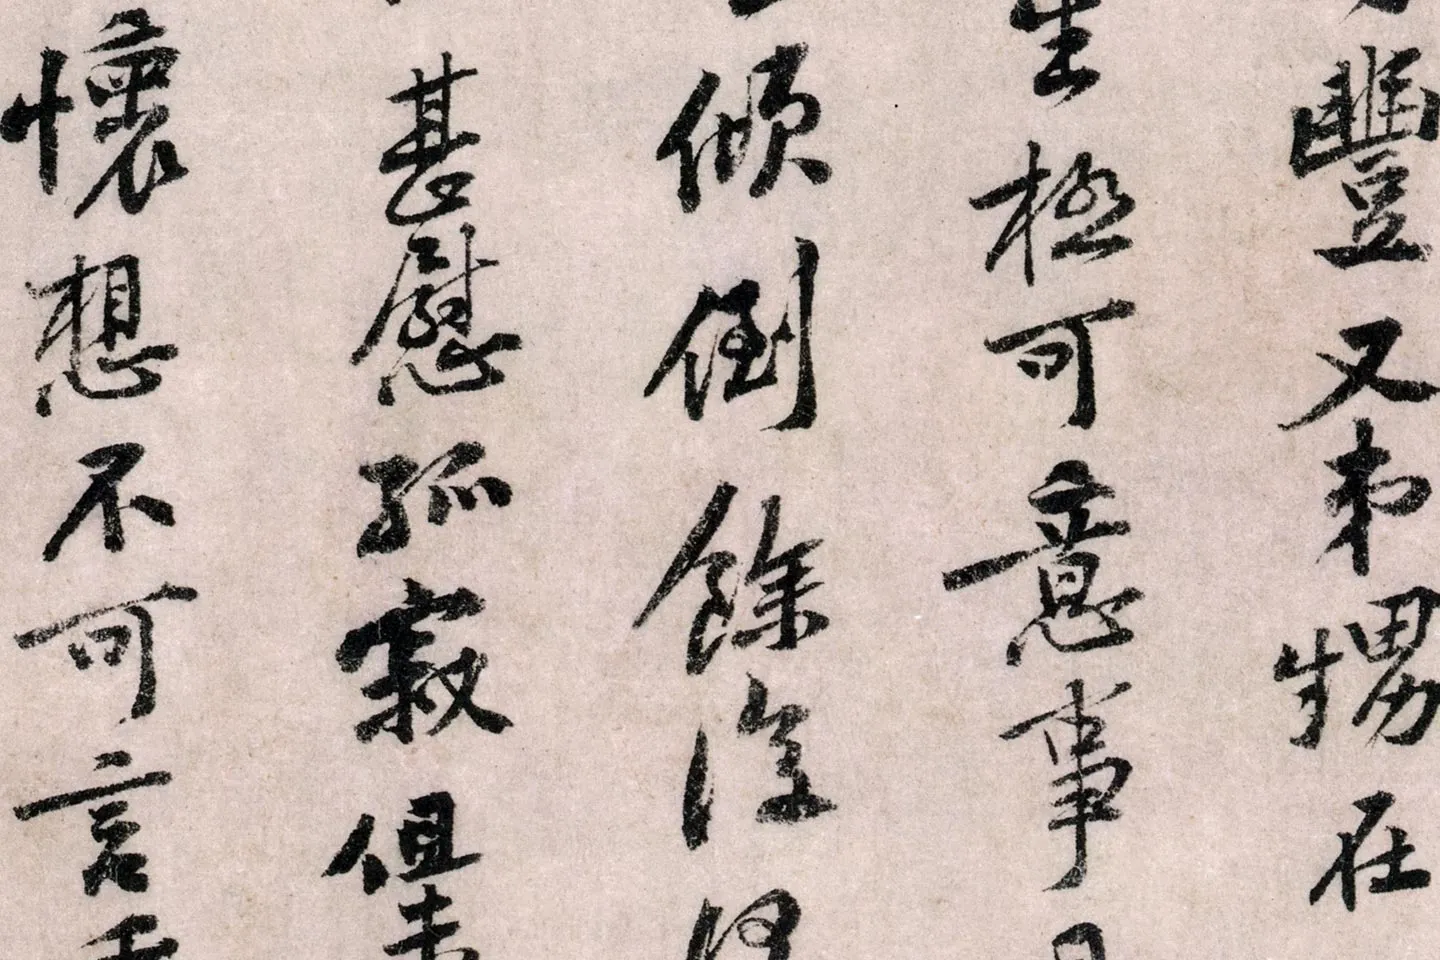 豐又弟甥在
生極可意事
傾倒餘深
甚慰孤寂但未
懷想不可言